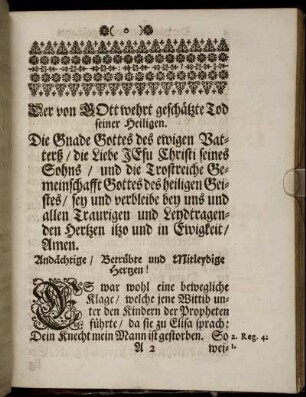 ( o )
Der von GOtt wehrt geschätzte Tod
seiner Heiligen.
Die Gnade Gottes des ewigen Vat-
terß / die Liebe JEsu Christi seines
Sohns / und die Trostreiche Ge-
meinschafft Gottes des heiligen Gei-
stes / sey und verbleibe bey uns und
allen Traurigen und Leydtragen-
den Hertzen itzo und in Ewigkeit /
Amen.
Andächtige / Betrübte und Mitleydige
Hertzen!
ES war wohl eine bewegliche
Klage / welche jene Wittib un-
ter den Kindern der Propheten
führte / da sie zu Elisa sprach:
Dein Knecht mein Mann ist gestorben. So 2. Reg. 4:
A 2 wei- 1.